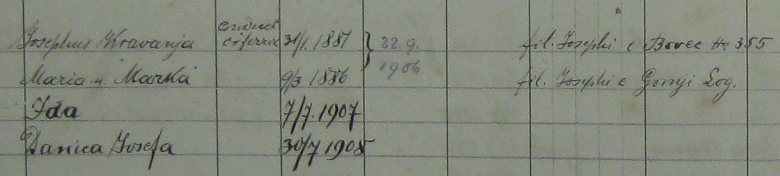 Josephus Kravanja conduct. 31/1. 1881 22.9. fil. Josephi e Bovec № 355
Maria n. Marka 9/3 1886 1906 fil. Josephi e Gornji Log.
Ida 7/7. 1907
Danica Josefa 30/7 1908